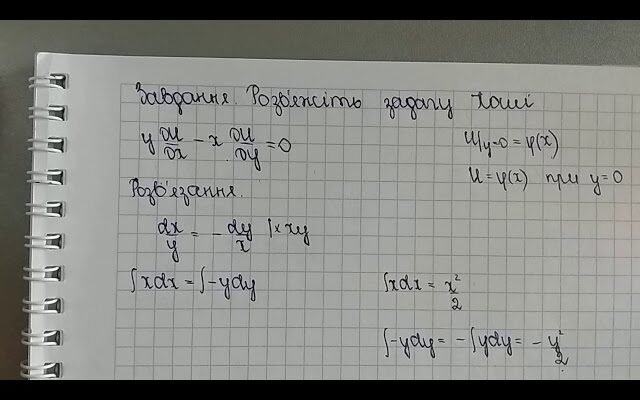 Завдання. Розв'яжіть задачу Коші
y ∂u/∂x − x ∂u/∂y = 0
u|y=0 = φ(x)
u = φ(x) при y = 0
Розв'язання.
dx/y = − dy/x | × xy
∫xdx = ∫−ydy
∫xdx = x²/2
∫−ydy = −∫ydy = − y²/2